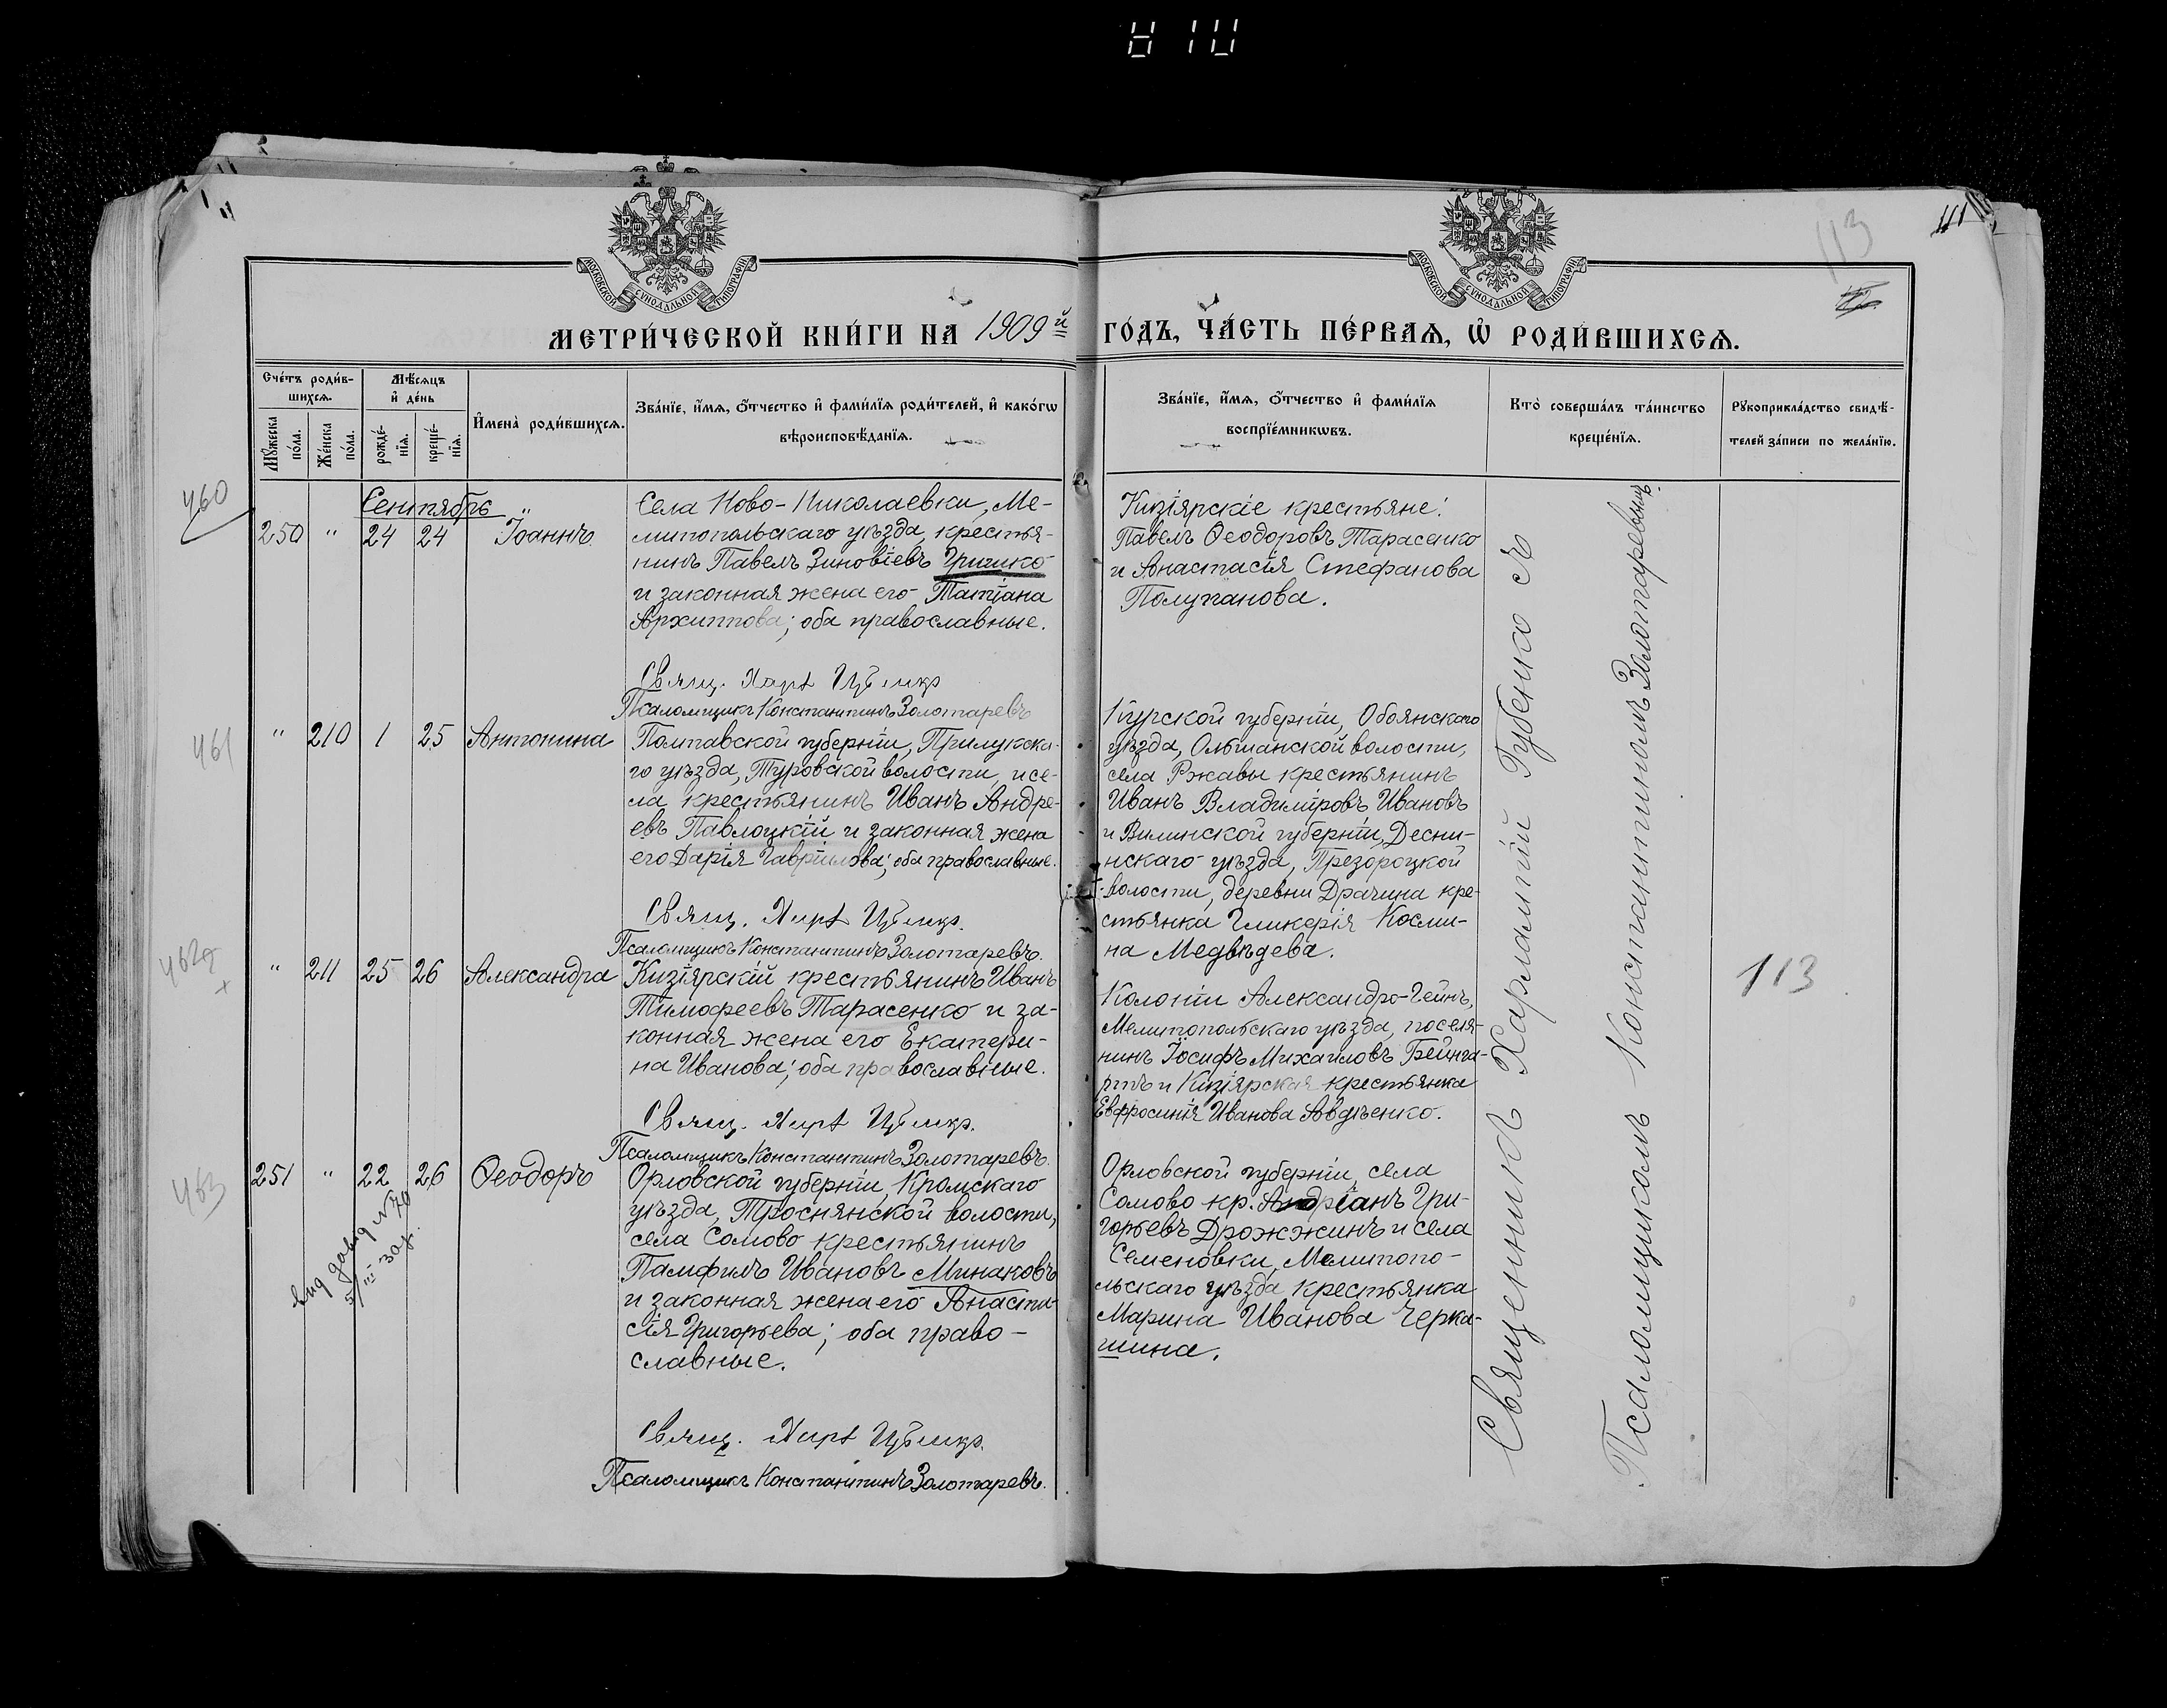 МЕТРИ́ЧЕСКОЙ КНИ́ГИ НА 1909й ГО́ДЪ, ЧА́СТЬ ПЕ́РВАѦ, Ѡ҆ РОДИ́ВШИХСѦ.
113
111
МОСКОВСКОЙ СѴНОДАЛЬНОЙ ТИПОГРАФІИ
МОСКОВСКОЙ СѴНОДАЛЬНОЙ ТИПОГРАФІИ
Сче́тъ роди́в-
шихсѧ.
Мꙋ́жеска по́ла.
Же́нска по́ла.
Мѣ́сѧцъ
и҆ де́нь
рожде́-
нїѧ.
креще́-
нїѧ.
И҆мена̀ роди́вшихсѧ.
Зва́нїе, и҆́мѧ, ѻ҆́тчество и҆ фами́лїѧ роди́телей, и҆ како́гѡ
вѣроисповѣ́данїѧ.
Зва́нїе, и҆́мѧ, ѻ҆́тчество и҆ фами́лїѧ
воспрїе́мникѡвъ.
Кто̀ соверша́лъ та́инство
креще́нїѧ.
Рꙋкоприкла́дство свидѣ́-
телей за́писи по жела́нїю.
460
Сентябрь
250 " 24 24 Іоаннъ
Села Ново-Николаевки, Ме-
литопольскаго уѣзда, крестья-
нинъ Павелъ Зиновіевъ Гришко
и законная жена его Татіана
Архиппова; оба православные.
Свящ.
Псаломщикъ Константинъ Золотаревъ
Кизіярскіе крестьяне:
Павелъ Ѳеодоровъ Тарасенко
и Анастасія Стефанова
Полупанова.
461
" 210 1 25 Антонина
Полтавской губерніи, Прилукска-
го уѣзда, Туровской волости, и се-
ла крестьянинъ Иванъ Андре-
евъ Павлоцкій и законная жена
его Дарія Гавріилова; оба православные.
Свящ.
Псаломщикъ Константинъ Золотаревъ.
Курской губерніи, Обоянскаго
уѣзда, Ольшанской волости,
села Ржавы крестьянинъ
Иванъ Владиміровъ Ивановъ
и Виленской губерніи, Десни-
нскаго уѣзда, Презороцкой
волости, деревни Драчина кре-
стьянка Гликерія Косми-
на Медвѣдева.
462
" 211 25 26 Александра
Кизіярскій крестьянинъ Иванъ
Тимоѳеевъ Тарасенко и за-
конная жена его Екатери-
на Иванова; оба православные.
Свящ.
Псаломщикъ Константинъ Золотаревъ.
Колоніи Александро-Гейнъ,
Мелитопольскаго уѣзда, поселя-
нинъ Іосифъ Михаиловъ Бейнга-
ртъ и Кизіярская крестьянка
Евфросинія Иванова Авдѣенко.
113
463
251 " 22 26 Ѳеодоръ
Орловской губерніи, Кромскаго
уѣзда, Троснянской волости,
села Сомово крестьянинъ
Памфилъ Ивановъ Минаковъ
и законная жена его Анаста-
сія Григорьева; оба право-
славные.
Свящ.
Псаломщикъ Константинъ Золотаревъ.
Орловской губерніи, села
Сомово кр. Андріанъ Гри-
горьевъ Дрожжинъ и села
Семеновки, Мелитопо-
льскаго уѣзда, крестьянка
Марина Иванова Черка-
шина.
Священникъ Харлампій Губенко съ
Псаломщикомъ Константиномъ Золотаревымъ.